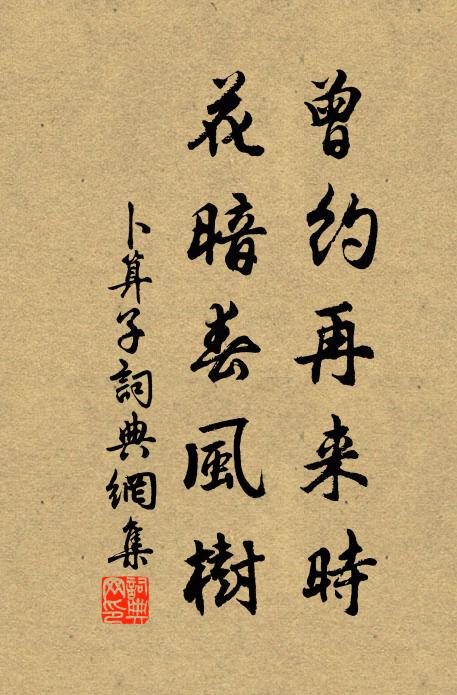 曾约再来時
花暗春風樹
卜算子詞典網集
詞典网印